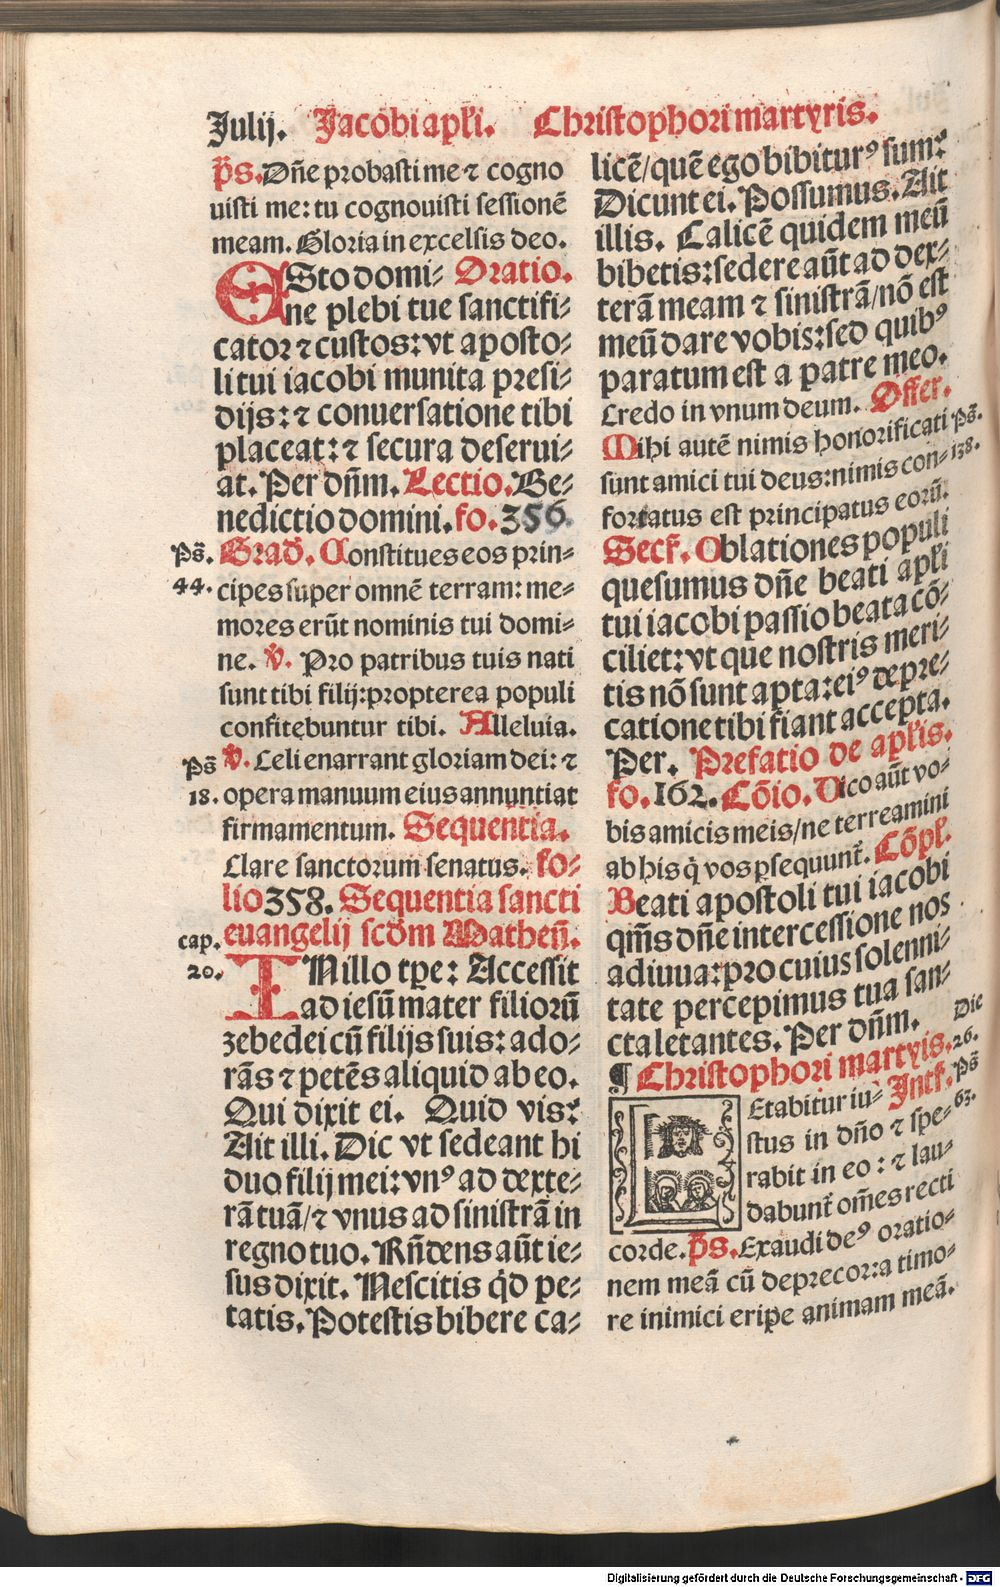 Julij. Jacobi apľi. Christophori martyris.
p̄s. Dn̄e probasti me ⁊ cogno
uisti me: tu cognouisti sessionē
meam. Gloria in excelsis deo.
ESto domi⸗ Oratio.
ne plebi tue sanctifi⸗
cator ⁊ custos: vt aposto⸗
li tui iacobi munita presi⸗
dijs: ⁊ conuersatione tibi
placeat: ⁊ secura deserui⸗
at. Per dn̄m. Lectio. Be⸗
nedictio domini. fo. 356.
Ps̄. Grad̄. Constitues eos prin⸗
44. cipes super omnē terram: me⸗
mores erūt nominis tui domi⸗
ne. v̄. Pro patribus tuis nati
sunt tibi filij: propterea populi
confitebuntur tibi. Alleluia.
Ps̄ v̄. Celi enarrant gloriam dei: ⁊
18. opera manuum eius annuntiat
firmamentum. Sequentia.
Clare sanctorum senatus. fo⸗
lio 358. Sequentia sancti
cap. euangelij scd̄m Matheū.
20. IN illo tp̄e: Accessit
ad iesū mater filiorū
zebedei cū filijs suis: ado⸗
rās ⁊ petēs aliquid ab eo.
Qui dixit ei. Quid vis?
Ait illi. Dic vt sedeant hi
duo filij mei: vnꝰ ad dexte⸗
rā tuā/ ⁊ vnus ad sinistrā in
regno tuo. Rn̄dens aūt ie⸗
sus dixit. Nescitis qd̄ pe⸗
tatis. Potestis bibere ca⸗
licē/ quē ego bibiturꝰ sum?
Dicunt ei. Possumus. Ait
illis. Calicē quidem meū
bibetis: sedere aūt ad dex⸗
terā meam ⁊ sinistrā/ nō est
meū dare vobis: sed quibꝰ
paratum est a patre meo.
Credo in vnum deum. Offer.
Mihi autē nimis honorificati Ps̄.
sunt amici tui deus: nimis con⸗ 138.
fortatus est principatus eorū.
Secr̄. Oblationes populi
quesumus dn̄e beati apľi
tui iacobi passio beata cō⸗
ciliet: vt que nostris meri⸗
tis nō sunt apta: eiꝰ depre⸗
catione tibi fiant accepta.
Per. Prefatio de apľis.
fo. 162. Cōio. Dico aūt vo⸗
bis amicis meis/ ne terreamini
ab his q̇ vos ꝑsequunt̄. Cōpl̄.
Beati apostoli tui iacobi
qm̄s dn̄e intercessione nos
adiuua: pro cuius solenni⸗
tate percepimus tua san⸗
cta letantes. Per dn̄m. Die
¶ Christophori martyris. 26.
LEtabitur iu⸗ Intr̄. Ps̄
stus in dn̄o ⁊ spe⸗ 63.
rabit in eo: ⁊ lau⸗
dabunt̄ om̄es recti
corde. p̄s. Exaudi deꝰ oratio⸗
nem meā cū deprecor: a timo⸗
re inimici eripe animam meā.
Digitalisierung gefördert durch die Deutsche Forschungsgemeinschaft - DFG